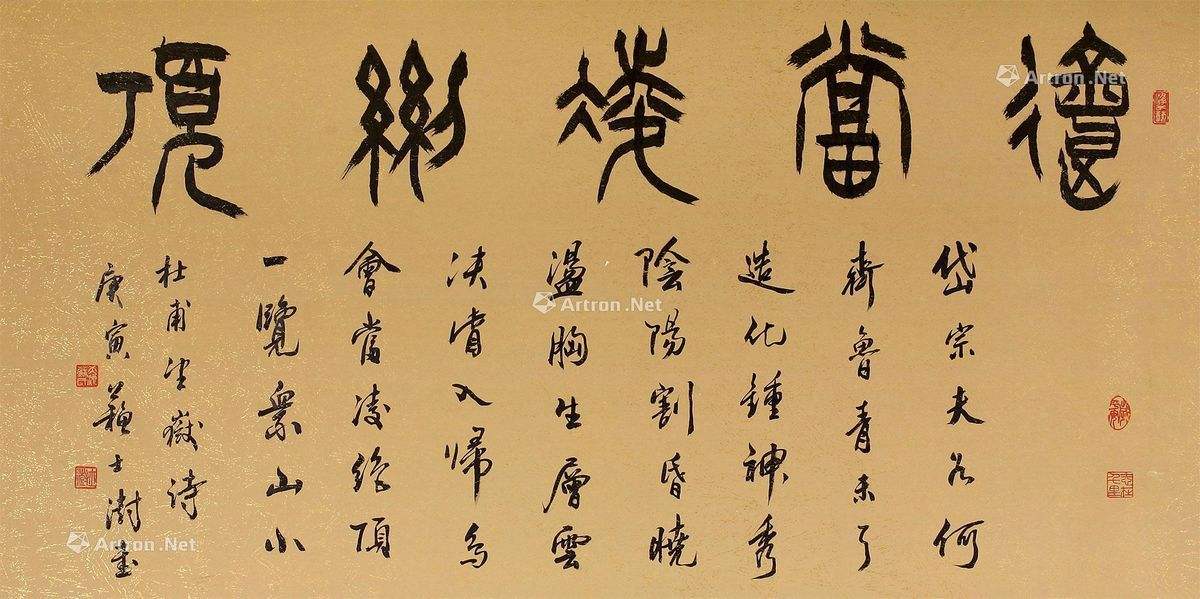 會當凌絕頂
岱宗夫如何
齊魯青未了
造化鍾神秀
陰陽割昏曉
盪胸生層雲
決眥入歸鳥
會當凌絕頂
一覽眾山小
杜甫望嶽詩
庚寅蘇士澍書
Artron.Net
Artron.Net
Artron.Net